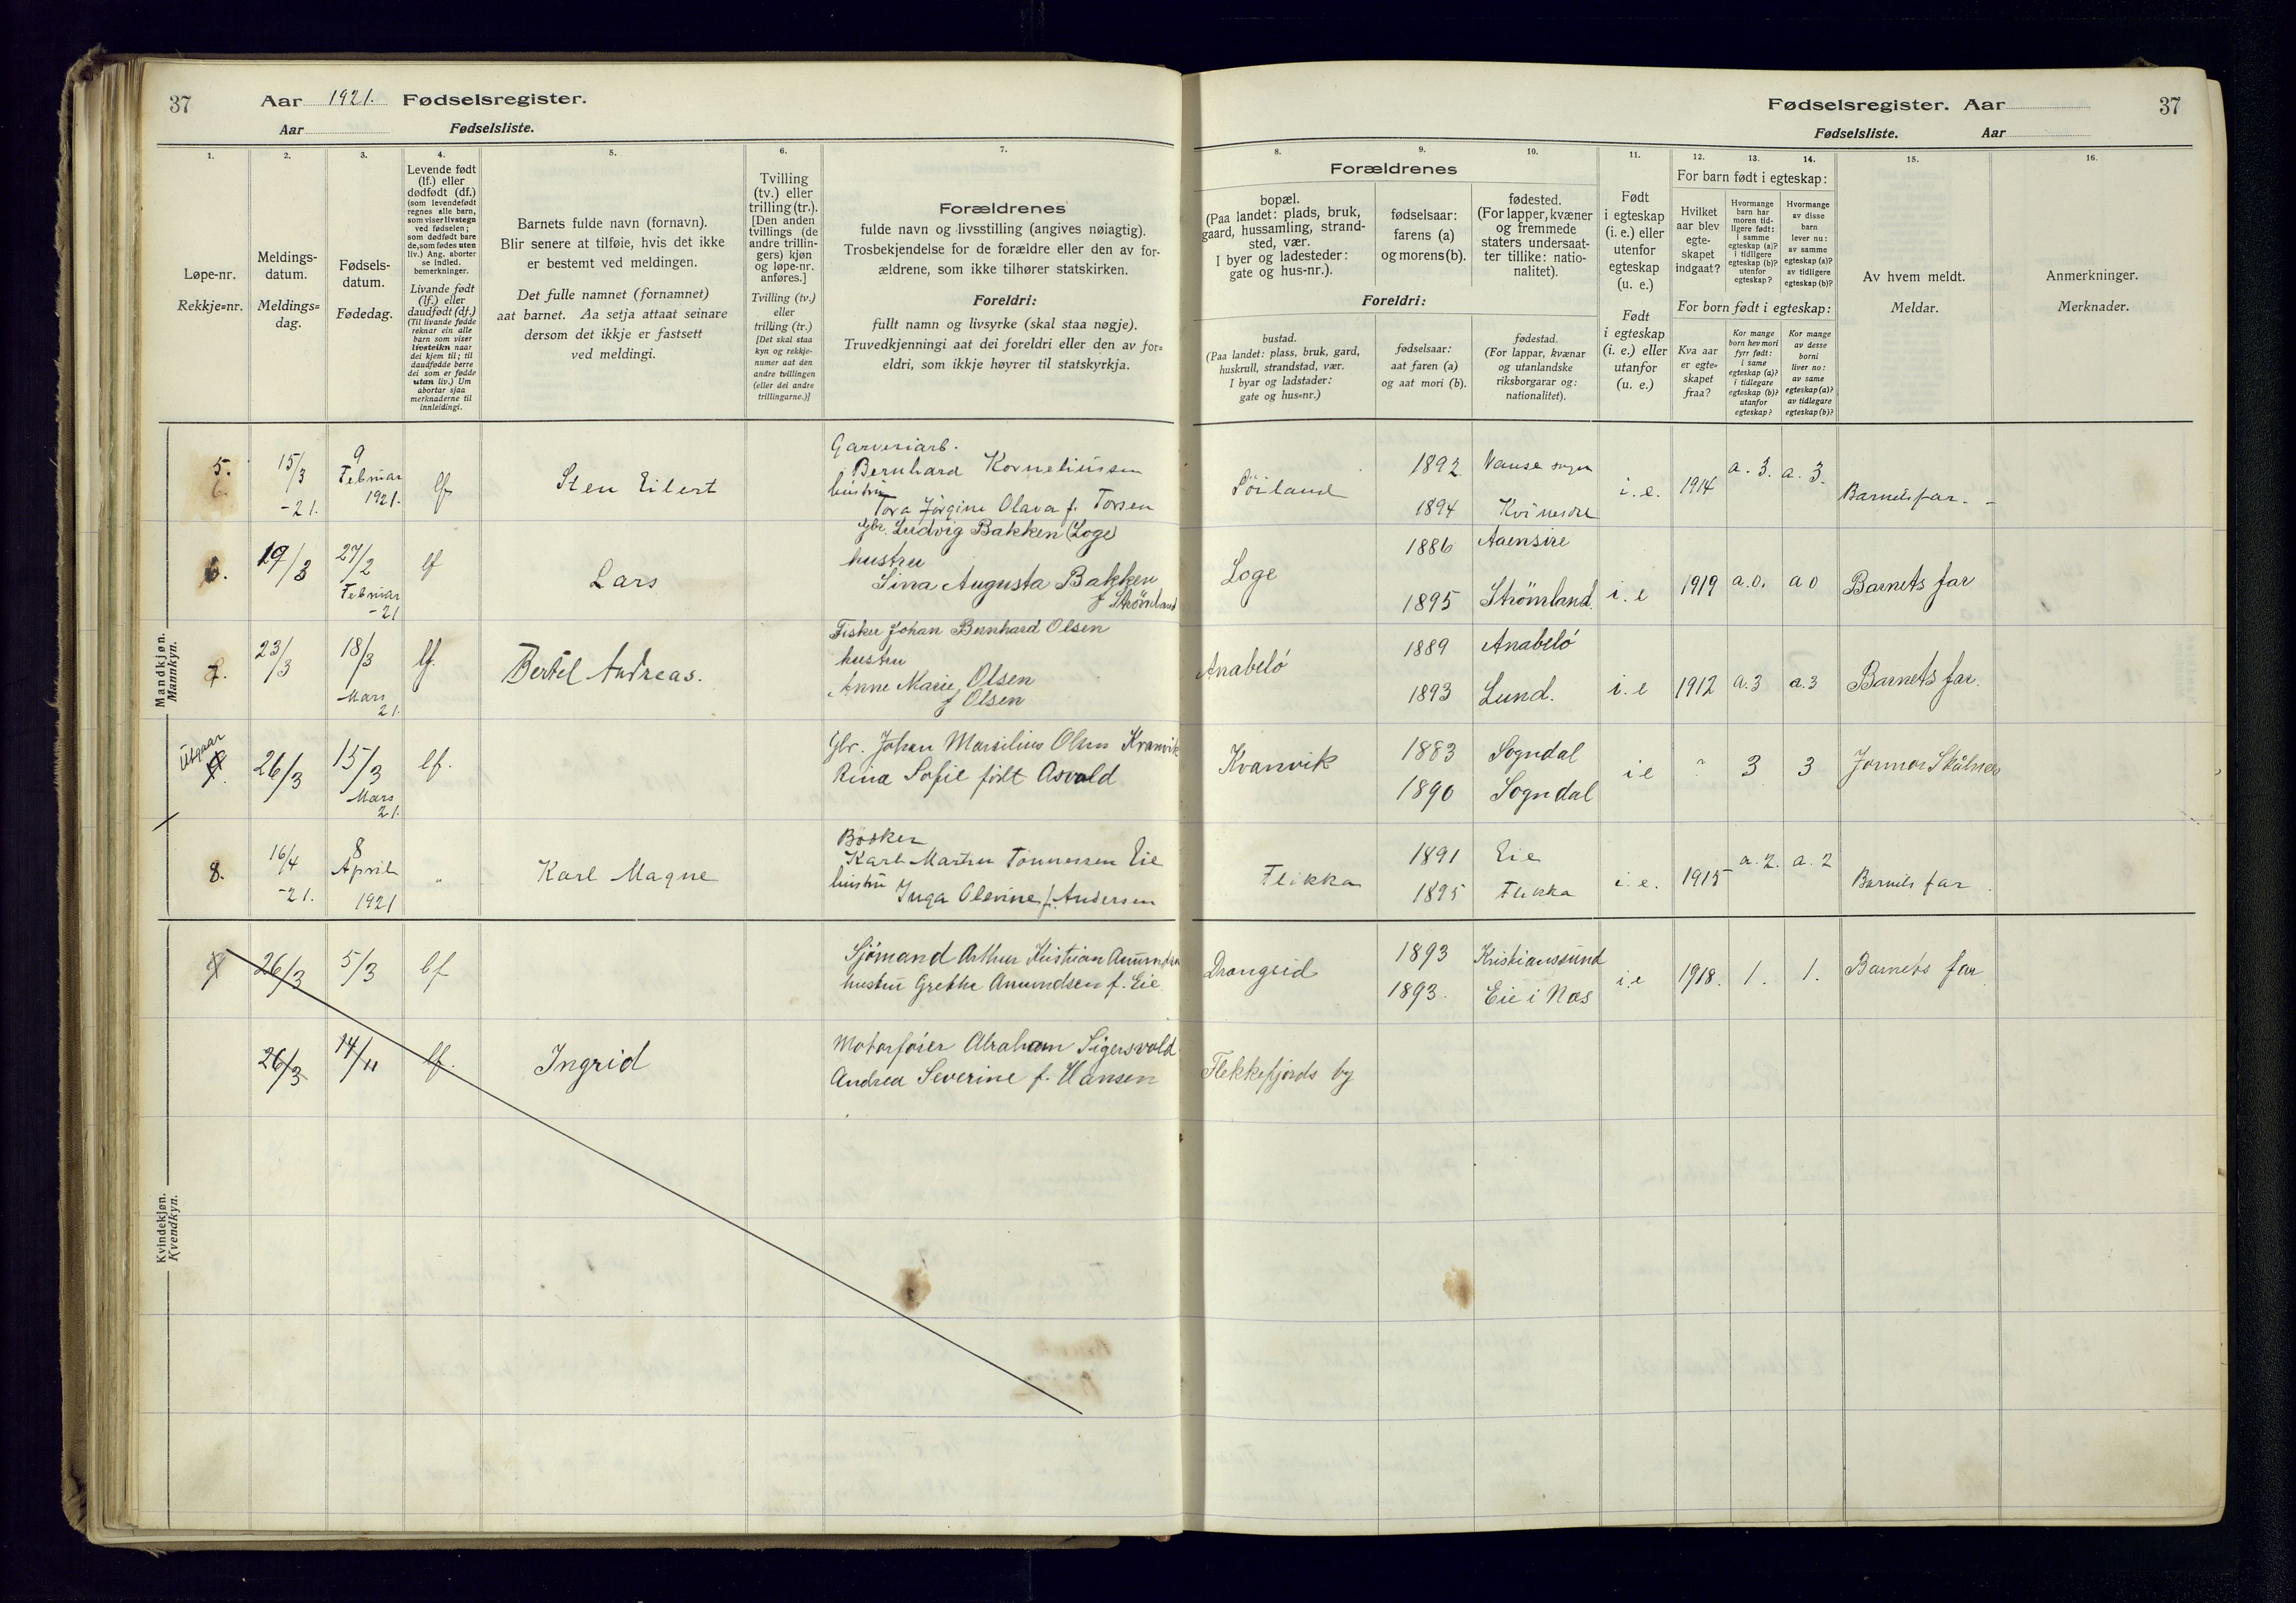 37
Aar 1921. Fødselsregister.
Aar Fødselsliste.
Fødselsregister. Aar
37
Fødselsliste. Aar
1.
2.
3.
4.
5.
6.
7.
8.
9.
10.
11.
12.
13.
14.
15.
16.
Løpe-nr.
Rekkje=nr.
Meldings-
datum.
Meldings=
dag.
Fødsels-
datum.
Fødedag.
Levende født
(lf.) eller
dødfødt (df.)
(som levendefødt
regnes alle barn,
som viser livstegn
ved fødselen;
som dødfødt bare
de, som fødes uten
liv.) Ang. aborter
se indled.
bemerkninger.
Livande født
(lf.) eller
daudfødt (df.)
(Til livande fødde
reknar ein alle
barn som viser
livsteikn naar
dei kjem til; til
daudfødde berre
dei som er fødde
utan liv.) Um
abortar sjaa
merknaderne til
innleidingi.
Barnets fulde navn (fornavn).
Blir senere at tilføie, hvis det ikke
er bestemt ved meldingen.
Det fulle namnet (fornamnet)
aat barnet. Aa setja attaat seinare
dersom det ikkje er fastsett
ved meldingi.
Tvilling
(tv.) eller
trilling (tr.).
[Den anden
tvillings (de
andre trillin-
gers) kjøn
og løpe-nr.
anføres.]
Tvilling (tv.)
eller
trilling (tr.)
[Det skal staa
kyn og rekkje-
numer aat den
andre tvillingen
(eller dei andre
trillingarne.)]
Forældrenes
fulde navn og livsstilling (angives nøiagtig).
Trosbekjendelse for de forældre eller den av for-
ældrene, som ikke tilhører statskirken.
Foreldri:
fullt namn og livsyrke (skal staa nøgje).
Truvedkjenningi aat dei foreldri eller den av for=
eldri, som ikkje høyrer til statskyrkja.
Forældrenes
bopæl.
(Paa landet: plads, bruk,
gaard, hussamling, strand-
sted, vær.
I byer og ladesteder:
gate og hus-nr.).
fødselsaar:
farens (a)
og morens (b).
fødested.
(For lapper, kvæner
og fremmede
staters undersaat-
ter tillike: natio-
nalitet).
Foreldri:
bustad.
(Paa landet: plass, bruk, gard,
huskrull, strandstad, vær.
I byar og ladstader:
gate og hus=nr.)
fødselsaar:
aat faren (a)
og aat mori (b).
fødestad.
(For lappar, kvænar
og utanlandske
riksborgarar og:
nationalitet).
Født
i egteskap
(i. e.) eller
utenfor
egteskap
(u. e.)
Født
i egteskap
(i. e.) eller
utanfor
(u. e.)
For barn født i egteskap:
Hvilket
aar blev
egte-
skapet
indgaat?
Hvormange
barn har
moren tid-
ligere født:
i samme
egteskap (a)?
i tidligere
egteskap (b)?
utenfor
egteskap?
Hvormange
av disse
barn
lever nu:
av samme
egteskap (a)?
av tidligere
egteskap (b)?
For born født i egteskap:
Kva aar
er egte=
skapet
fraa?
Kor mange
born hev mori
fyrr født:
i same
egteskap (a)?
i tidlegare
egteskap (b)?
utanfor
egteskap?
Kor mange
av desse
borni
liver no:
av same
egteskap (a)?
av tidlegare
egteskap (b)?
Av hvem meldt.
Meldar.
Anmerkninger.
Merknader.
Mandkjøn.
Mannkyn.
5.
15/3
-21.
9
Februar
1921.
lf
Sten Eilert
Garveriarb.
Bernhard Korneliussen
hustru
Tora Jørgine Olava f. Torsen
1892
1894
Vanse sogn
i. e.
1914
a. 3.
a. 3.
Barnets far.
6.
19/3
27/2
Februar
-21
lf
Lars
Gbr. Ludvig Bakken (Loge)
hustru
Sina Augusta Bakken
f Strømland
Loge
1886
1895
Aaensire
Strømland.
i. e
1919
a. 0.
a 0
Barnets far
7.
23/3
18/3
Mars
21.
lf.
Bertel Andreas.
Fisker Johan Bernhard Olsen
hustru
Anne Marie, Olsen
f Olsen
Anabelø
1889
1893
Anabelø
Lund.
i. e
1912
a. 3
a. 3
Barnets far.
Utgaar
26/3
15/3
Mars
21.
lf.
Gbr. Johan Marsilius Olsen Kvanvik
Rina Sofie født Osvold
Kvanvik
1883
1890
Sogndal
Sogndal
i e
?
3
3
8.
16/4
-21.
8
April
1921
"
Karl Magne
Bøsker
Karl Martin Tønnessen Eie
hustru
Inga Olevine f. Andersen
Flikka
1891
1895
Eie
Flikka
i. e.
1915
a. 2.
a. 2
Barnets far
Kvindekjøn.
Kvendkyn.
26/3
5/3
lf
Sjømand Arthur Kristian Amundsen
hustru Grethe Amundsen f. Eie
Drangeid
1893
1893.
Kristianssund
Eie i Nas
i. e
1918.
1.
1.
Barnets far
26/3
14/11
lf.
Ingrid
Motorfører Abraham Sigersvold
Andrea Severine f. Hansen
Flekkefjords by